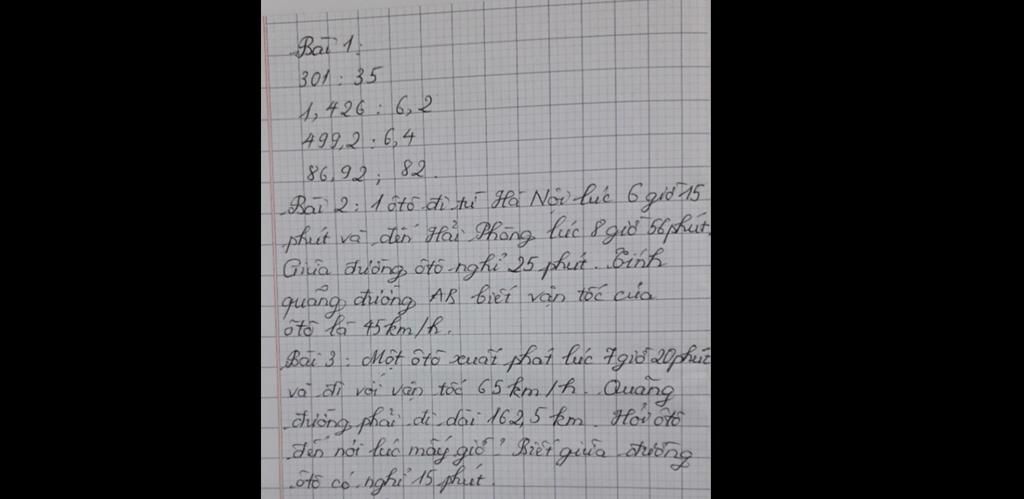 Bài 1:
301 : 35
1,426 : 6,2
499,2 : 6,4
86,92 : 82
Bài 2 : 1 ôtô đi từ Hà Nội lúc 6 giờ 15
phút và đến Hải Phòng lúc 8 giờ 56 phút.
Giữa đường ôtô nghỉ 25 phút. Tính
quãng đường AB biết vận tốc của
ôtô là 45 km/h.
Bài 3 : Một ôtô xuất phát lúc 7 giờ 20 phút
và đi với vận tốc 65 km/h. Quãng
đường phải đi dài 162,5 km. Hỏi ôtô
đến nơi lúc mấy giờ? Biết giữa đường
ôtô có nghỉ 15 phút.